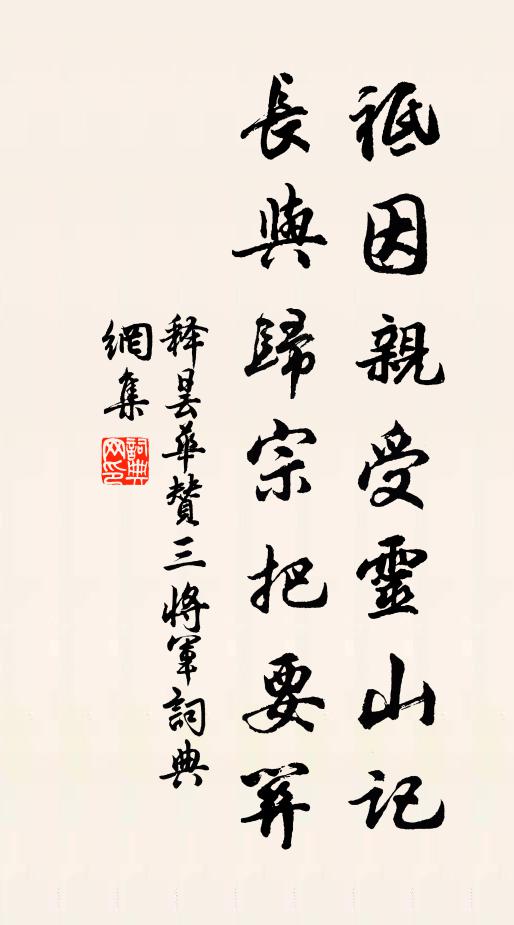 祗因親受靈山記
長與歸宗把要關
释曇華贊三將軍詞典
網集
詞典網印